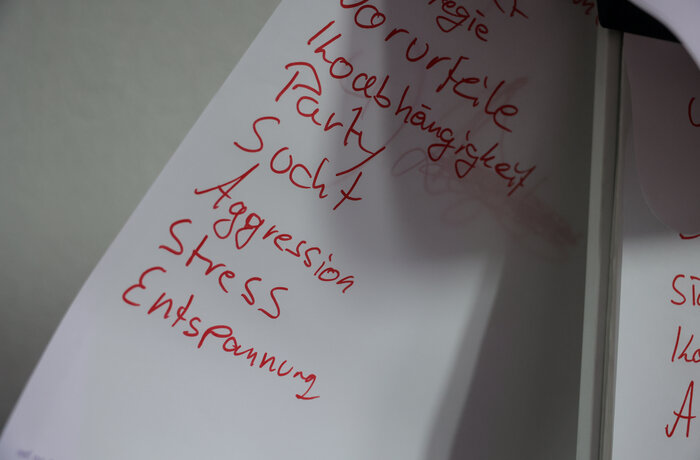 Vorurteile
Koabhängigkeit
Party
Sucht
Aggression
Stress
Entspannung